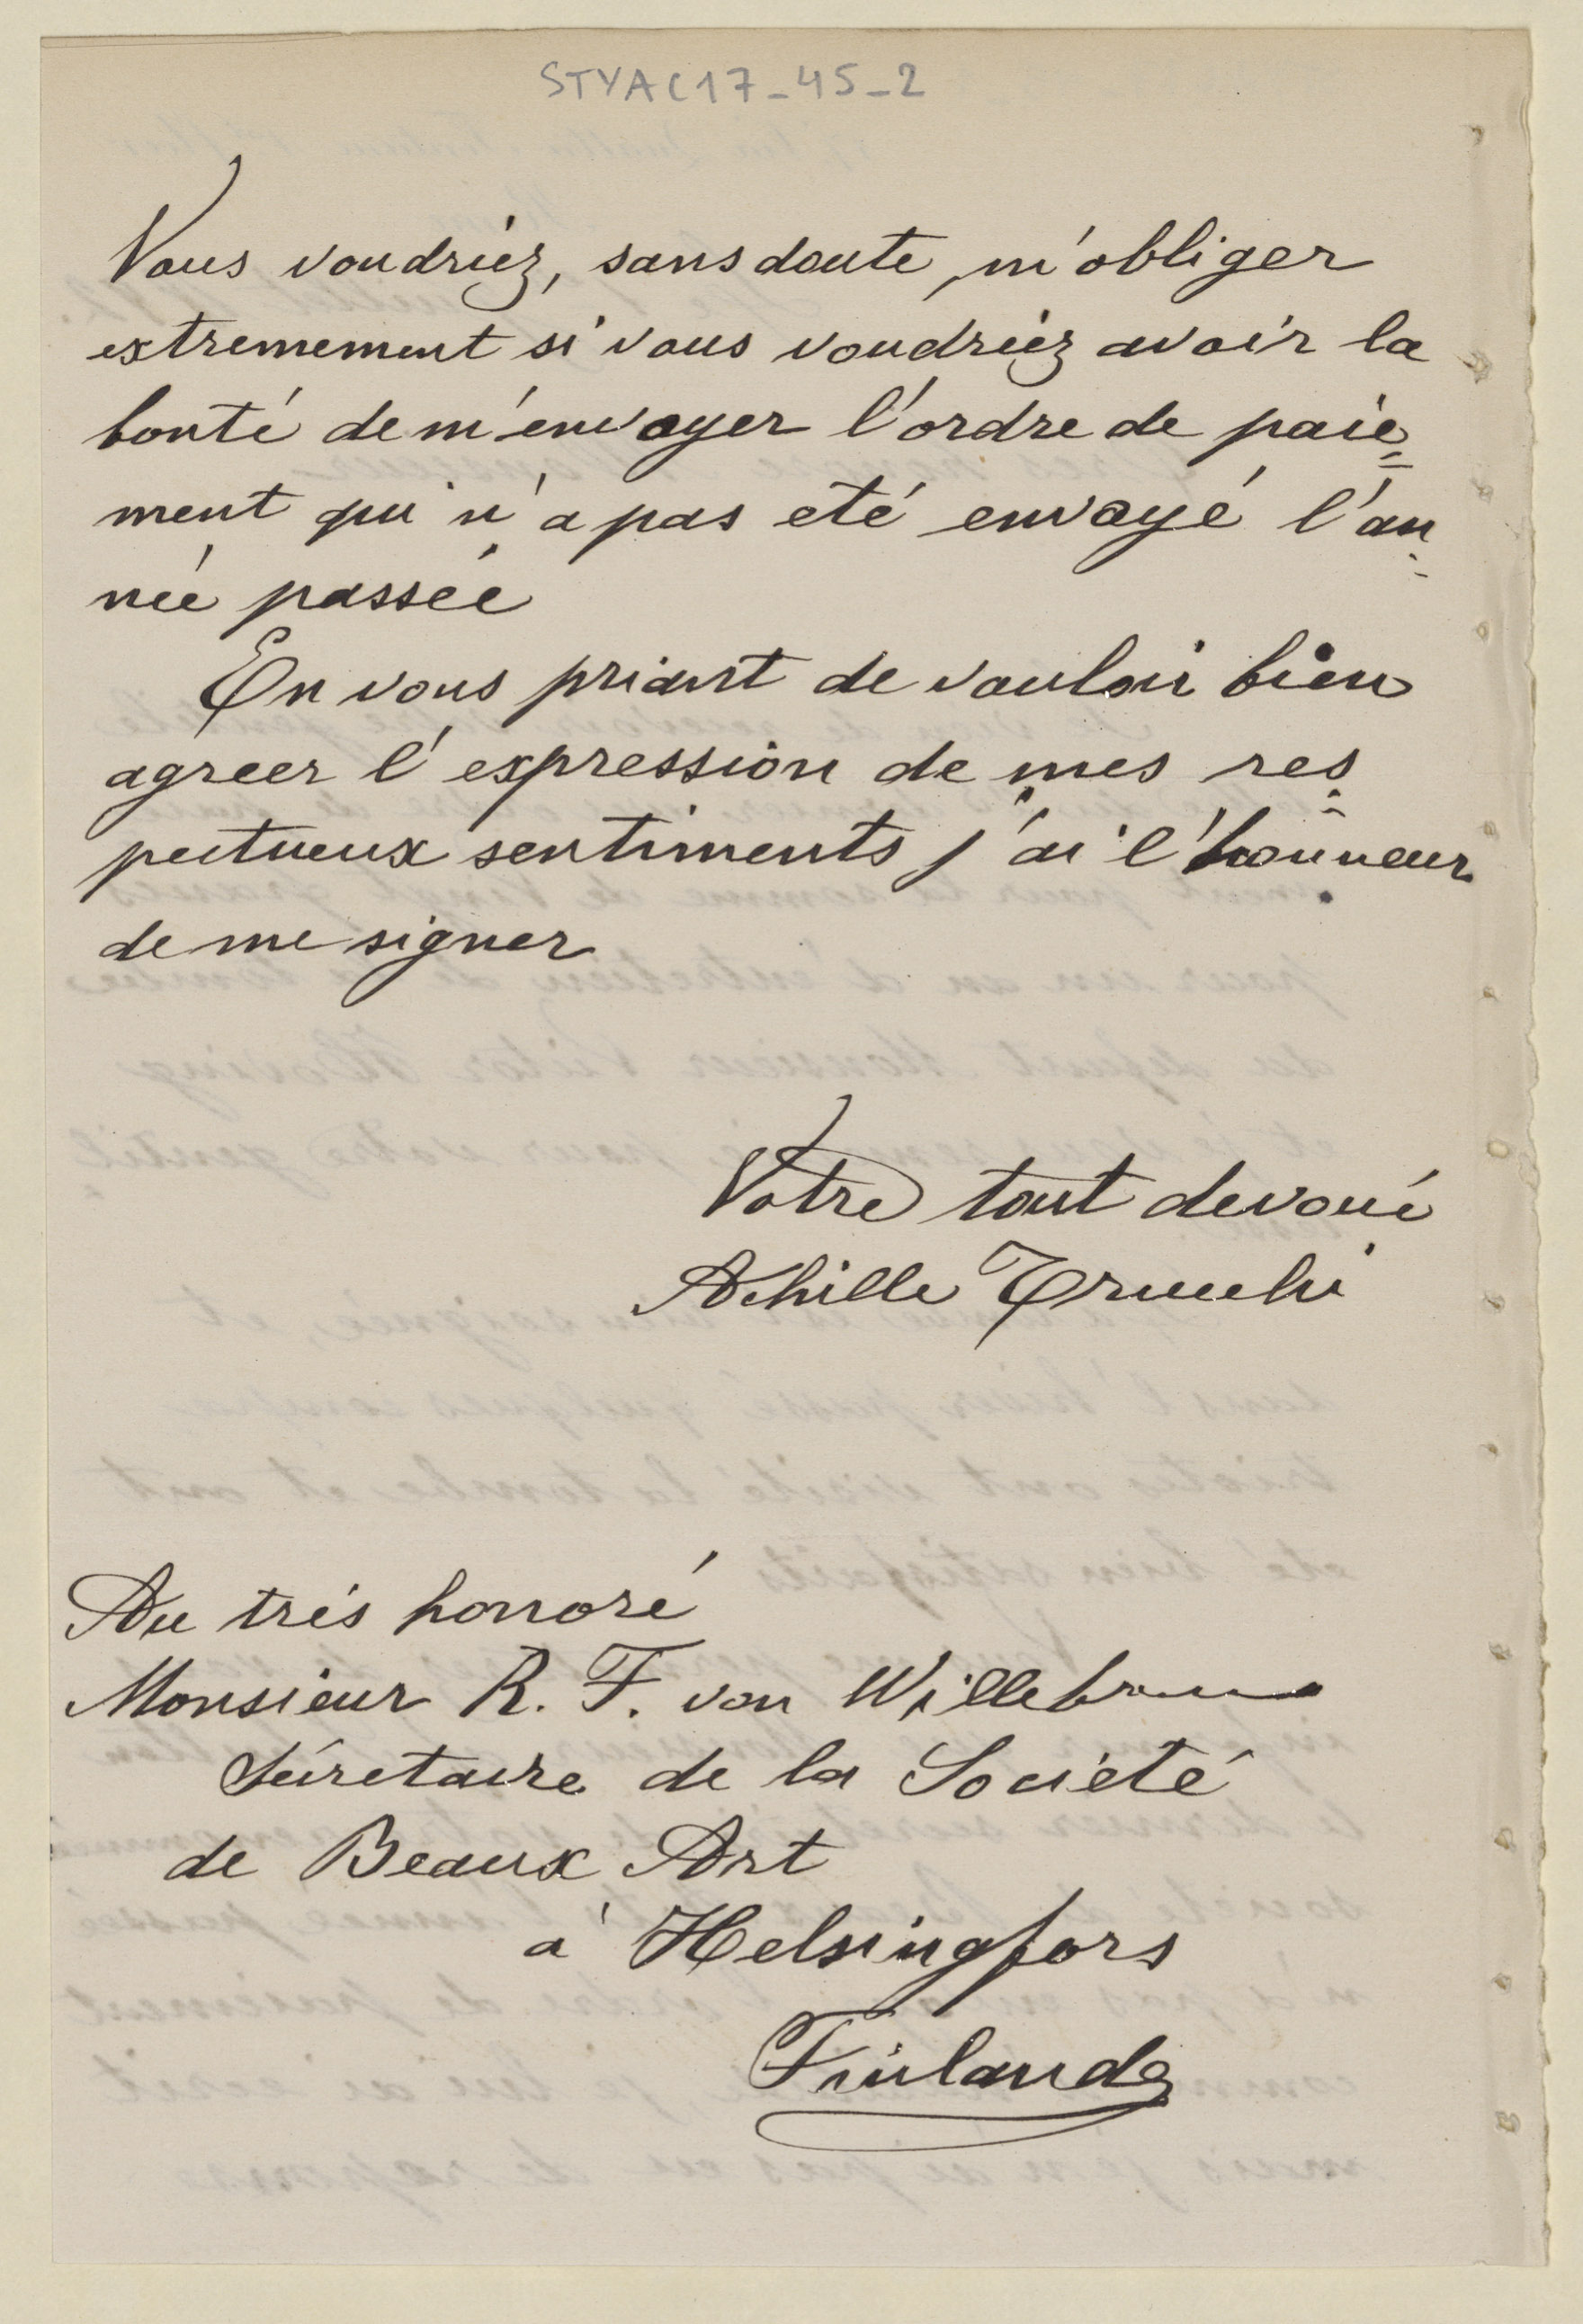 STYAC17-45-2
Vous voudriéz, sans doute, m'obliger
extremement si vous voudriéz avoir la
bonté de m'envoyer l'ordre de paie=
ment qui n'a pas eté envoyé l'an=
née passée
En vous priant de vouloir bien
agreer l'expression de mes res=
pectueux sentiments j'ai l'honneur
de me signer
Votre tout devoué
Achille
Au trés honoré
Monsieur R. F. von
Sécretaire de la Societé
de Beaux Art
à Helsingfors
Finlande